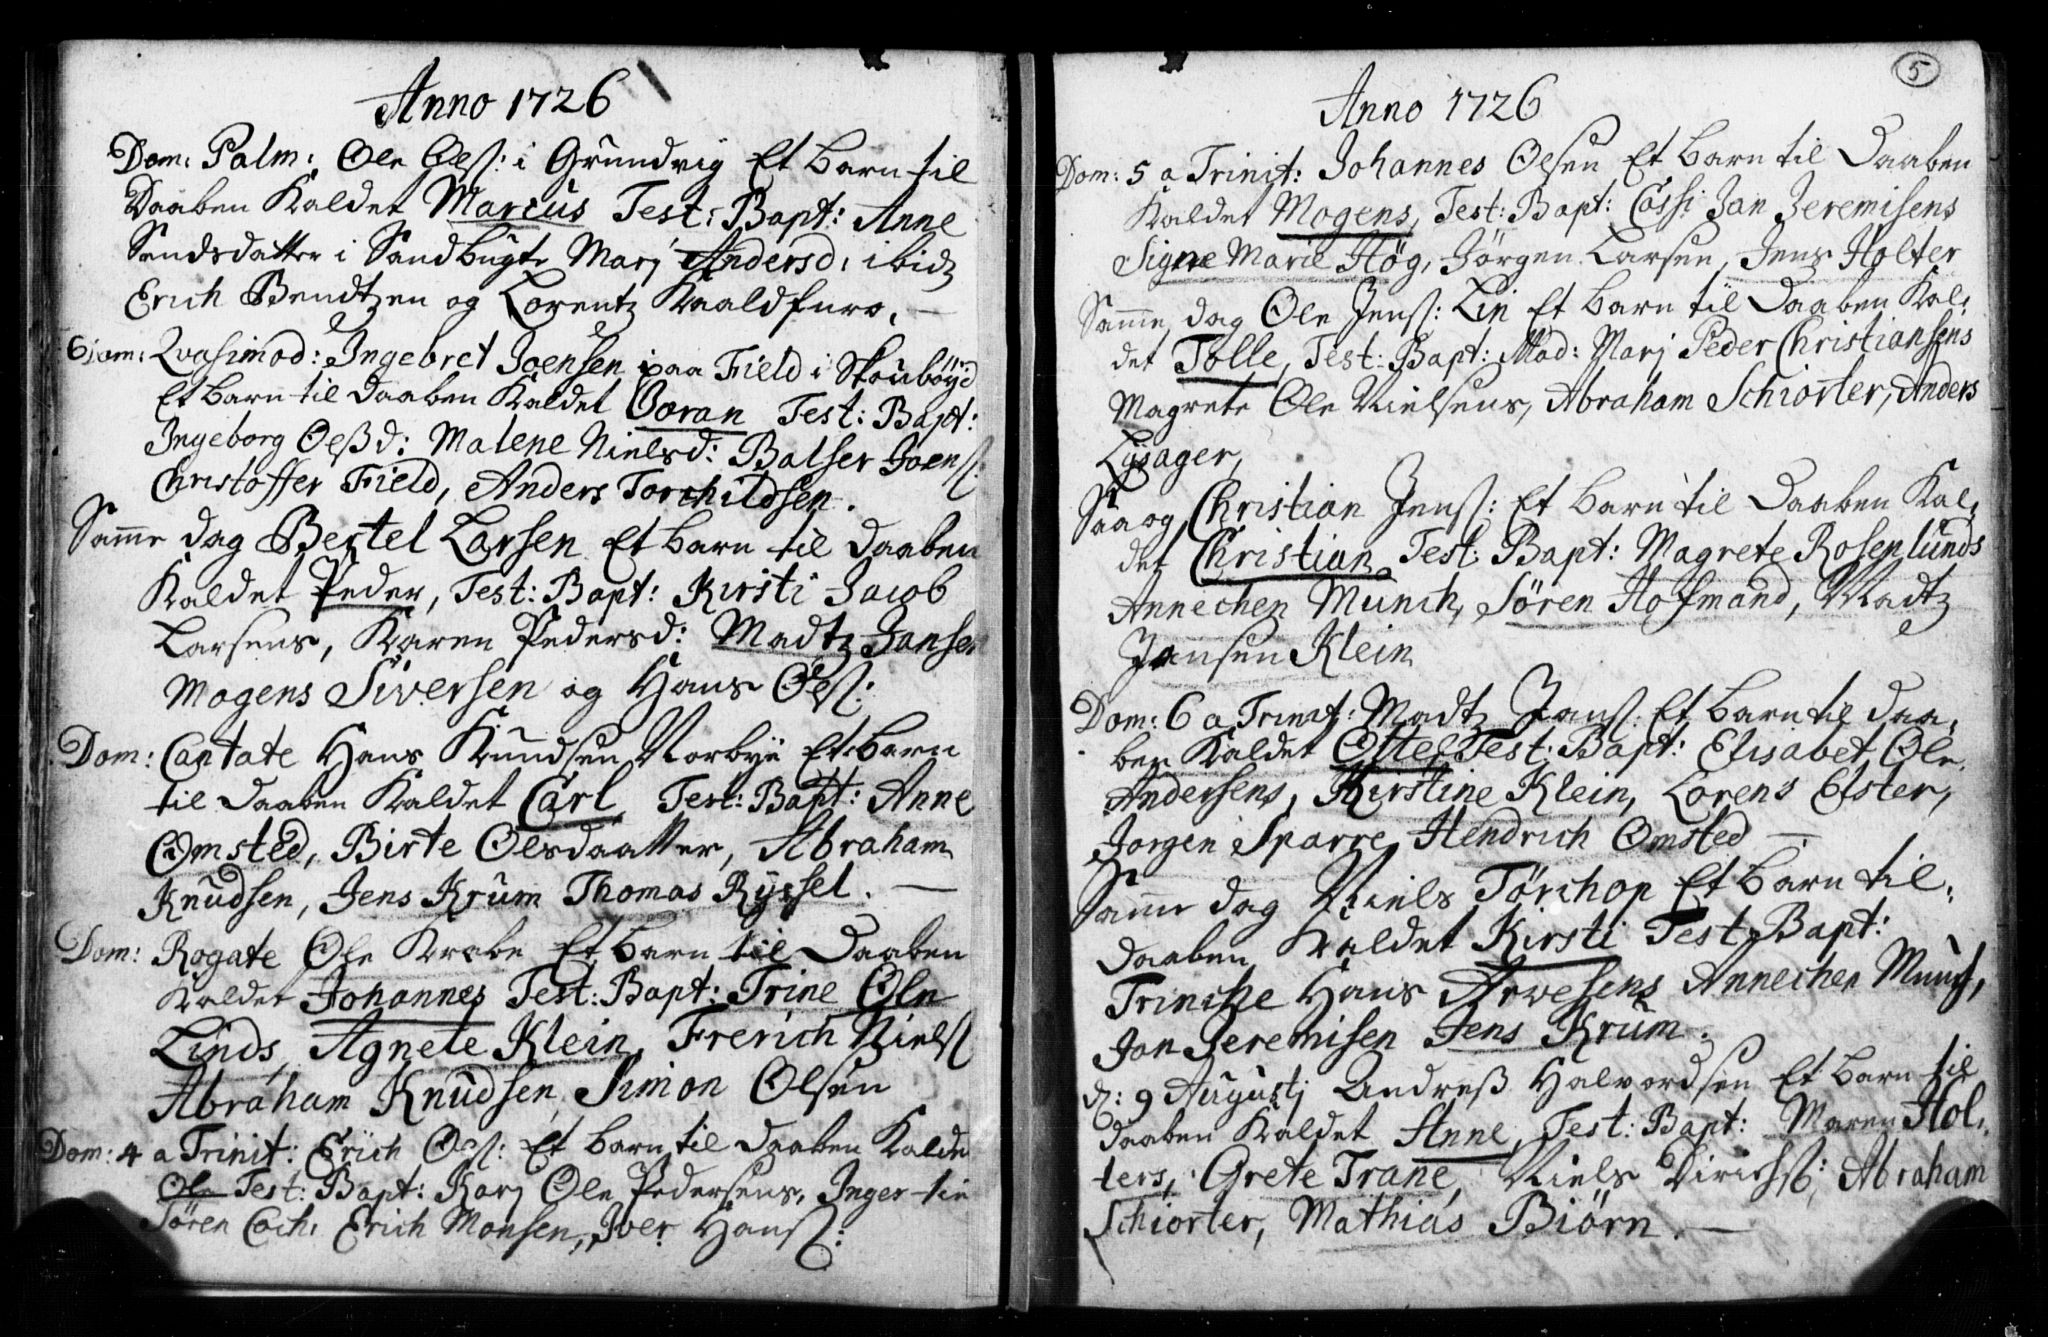 Anno 1726
Dom: Palm: Ole Olß: i Grundvig Et barn til
Daaben Kaldet Marcus Test: Bapt: Anne
Sendsdatter i Sandbugte Marj Andersd: ibidz
Erich Bendtzen og Lorentz Kaaldfuro.
Dom: Qvasimod: Ingebret Joensen paa Field i Skoubøyd
Et barn til Daaben Kaldet Goran Test: Bapt:
Ingeborg Olßd: Malene Nielsd: Balser Joenß:
Christoffer Field, Anders Torchildsen.
Samme dag Bertel Larsen Et barn til Daaben
Kaldet Peder, Test: Bapt: Kirsti Jacob
Larsens, Karen Pedersd: Madtz Janse
Mogens Siversen og Hans Olß:
Dom: Cantate Hans Knudsen Norbye Et barn
til Daaben Kaldet Carl Test: Bapt: Anne
Omsted, Birte Olsdaatter, Abraham
Knudsen, Jens Krum Thomas Ryssel.
Dom: Rogate Ole Krabe Et barn til Daaben
Kaldet Johannes Test: Bapt: Trine Ole
Linds, Agnete Klein, Frerich Nielß
Abraham Knudsen, Simon Olsen
Dom: 4 a Trinit: Erich Olß: Et barn til Daaben Kalde
Ole Test: Bapt: Karj Ole Pedersens, Inger
Søren Coch: Erich Monsen, Iver Hanß:
5
Anno 1726
Dom: 5 a Trinit: Johannes Olsen Et barn til Daaben
Kaldet Mogens, Test: Bapt: Cassi Jan Jeremisens
Signe Marie Høg, Jørgen Larsen, Jens Holter
Samme dag Ole Jenß: Lin Et barn til Daaben Kal:
det Tolle, Test: Bapt: Mad: Marj Peder Christiansens
Magrete Ole Nielsens, Abraham Schiorter, Anders
Lysager,
Saa og Christian Jenß: Et barn til Daaben Kal:
det Christian, Test: Bapt: Magrete Rosenlunds
Annechen Munch, Søren Hofmand, Madtz
Jansen Klein
Dom: 6 a Trinit: Madtz Janß: Et barn til Daa:
ben Kaldet Ottel Test: Bapt: Elisabet Ole
Andersens, Kirstine Klein, Lorens Elster,
Jørgen Sparre, Hendrich Omsted
Samme dag Niels Tørchop Et barn til
Daaben Kaldet Kirsti Test: Bapt:
Trinche Hans Arvesens Annechen Munch,
Jan Jeremisen Jens Krum.
d: 9 Augustj Andreß Halvordsen Et barn til
Daaben Kaldet Anne, Test: Bapt: Maren Hol:
ters, Grete Trane, Niels Dirichß: Abraham
Schiorter, Mathias Biørn.